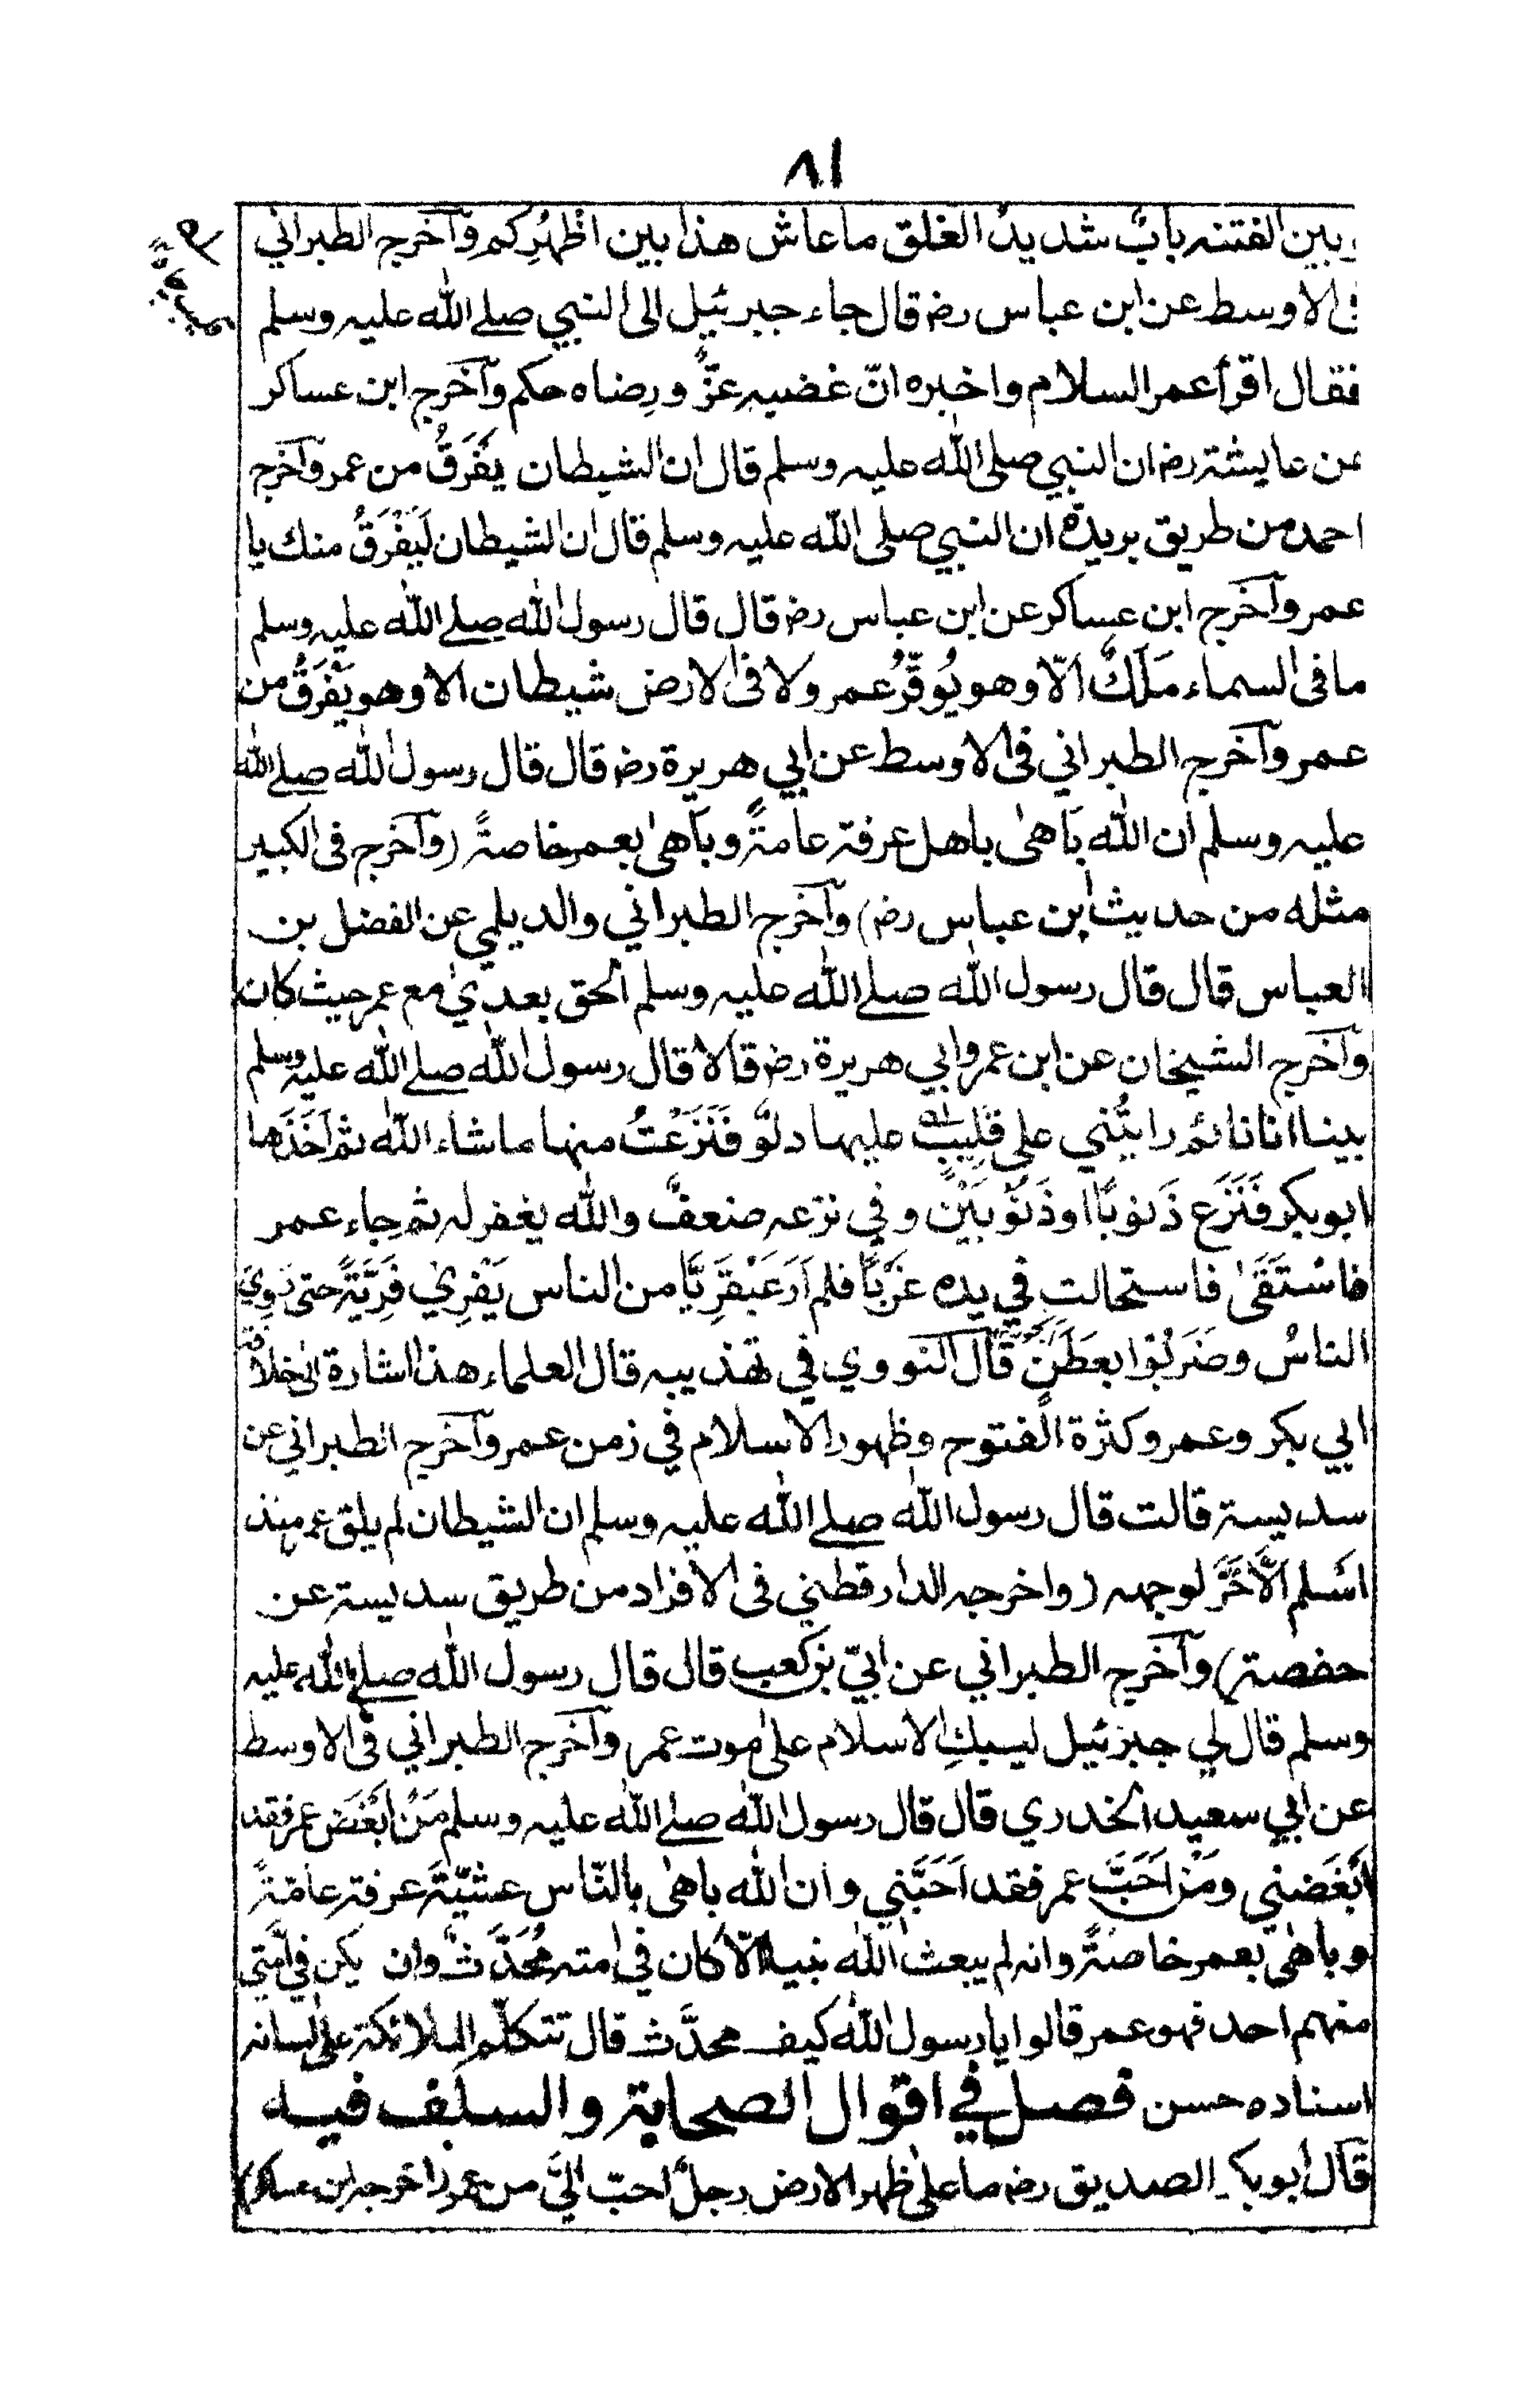 ٨١
وبين الفتنه بابٌ شديدُ الغلق ما عاش هذا بين اظهُرِكم وآخرج الطبراني
فى الاوسط عن ابن عباس رض قال جاء جبرئيل الى النبي صلے الله عليه وسلم
فقال اقرأ عمر السلام واخبره انّ غضبه عزٌّ ورِضاه حكم وآخرج ابن عساكر
عن عايشة رض ان النبي صلى الله عليه وسلم قال ان الشيطان يَفْرَقُ من عمر وآخرج
احمد من طريق بريدة ان النبي صلى الله عليه وسلم قال ان الشيطان لَيَفْرَقُ منك يا
عمر وآخرج ابن عساكر عن ابن عباس رض قال قال رسول الله صلے الله عليه وسلم
ما فى السماء مَلَكٌ الّا وهو يُوقّرُ عمر ولا فى الارض شيطان الا وهو يَفْرَقُ من
عمر وآخرج الطبراني فى الاوسط عن ابي هريرة رض قال قال رسول الله صلے الله
عليه وسلم ان الله بَاهىٰ باهل عرفة عامةً وبَاهىٰ بعمر خاصةً (وآخرج فى الكبير
مثله من حديث ابن عباس رض) وآخرج الطبراني والديلمي عن الفضل بن
العباس قال قال رسول الله صلے الله عليه وسلم الحق بعدي مع عمر حيث كان
وآخرج الشيخان عن ابن عمر وابي هريرة رض قالا قال رسول الله صلے الله عليه وسلم
بينا انا نائم رايتُني على قَلِيبٍ عليها دلوٌ فَنَزَعْتُ منها ما شاء الله ثم اَخَذَها
ابو بكر فَنَزَع ذَنُوبًا او ذَنُوبَيْنِ وفي نزعه ضعفٌ والله يغفر له ثم جاء عمر
فاسْتَقَىٰ فاستحالت في يده غَرْبًا فلم اَرَ عَبْقَرِيًّا من الناس يَفْرِي فَرِيَّةً حتى رَوِيَ
الناسُ وضَرَبُوا بعَطَنٍ قال النووي في تهذيبه قال العلماء هذا اشارة الى خلافة
ابي بكر وعمر وكثرة الفتوح وظهور الاسلام في زمن عمر وآخرج الطبراني عن
سديسة قالت قال رسول الله صلے الله عليه وسلم ان الشيطان لم يلق عمر منذ
اَسْلم الّا خَرَّ لوجهه (واخرجه الدارقطني فى الافراد من طريق سديسة عن
حفصة) وآخرج الطبراني عن ابيّ بن كعب قال قال رسول الله صلے الله عليه
وسلم قال لي جبرئيل ليبكِ الاسلام علىٰ موت عمر وآخرج الطبراني فى الاوسط
عن ابي سعيد الخدري قال قال رسول الله صلے الله عليه وسلم مَنْ اَبْغَضَ عمر فقد
اَبْغَضني ومَنْ اَحَبَّ عمر فقد اَحَبَّني وان الله باهىٰ بالنّاس عشيّةَ عرفة عامّةً
وباهىٰ بعمر خاصةً وانه لم يبعث الله نبيا الّا كان في امته مُحَدَّثٌ وان يكن في اُمَّتي
منهم احد فهو عمر قالوا يا رسول الله كيف محدَّث قال تتكلّم الملائكة على لسانه
اسناده حسن فصل في اقوال الصحابة والسلف فيه
قال ابو بكر الصديق رض ما علىٰ ظهر الارض رجلٌ احبّ اليَّ من عمر (اخرجه ابن عساكر)